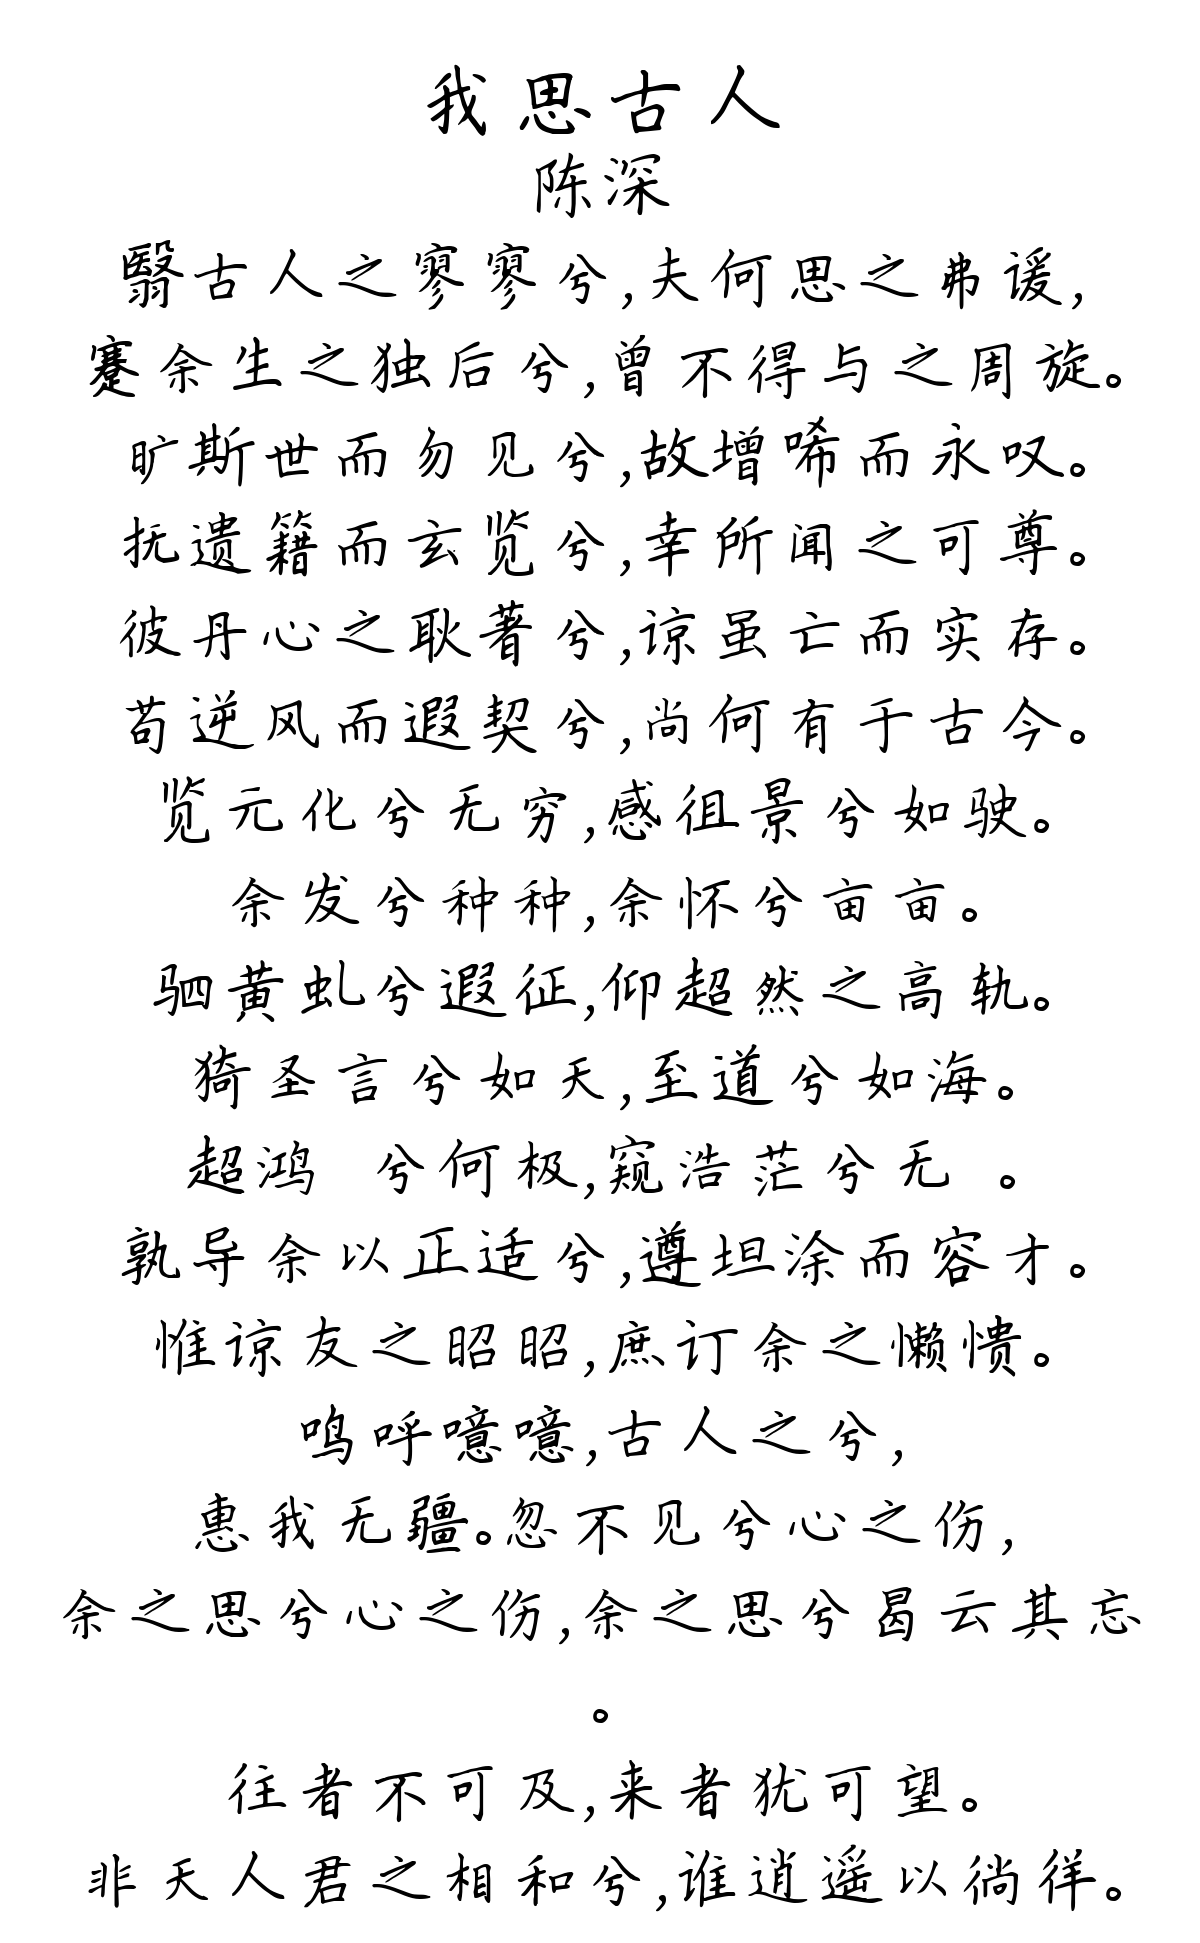 我思古人
陈深
翳古人之寥寥兮,夫何思之弗谖,
蹇余生之独后兮,曾不得与之周旋。
旷斯世而勿见兮,故增唏而永叹。
抚遗籍而玄览兮,幸所闻之可尊。
彼丹心之耿著兮,谅虽亡而实存。
苟逆风而遐契兮,尚何有于古今。
览元化兮无穷,感徂景兮如驶。
余发兮种种,余怀兮亩亩。
驷黄虬兮遐征,仰超然之高轨。
猗圣言兮如天,至道兮如海。
超鸿 兮何极,窥浩茫兮无 。
孰导余以正适兮,遵坦涂而容才。
惟谅友之昭昭,庶订余之懒愦。
呜呼噫噫,古人之兮,
惠我无疆。忽不见兮心之伤,
余之思兮心之伤,余之思兮曷云其忘
。
往者不可及,来者犹可望。
非天人君之相和兮,谁逍遥以徜徉。